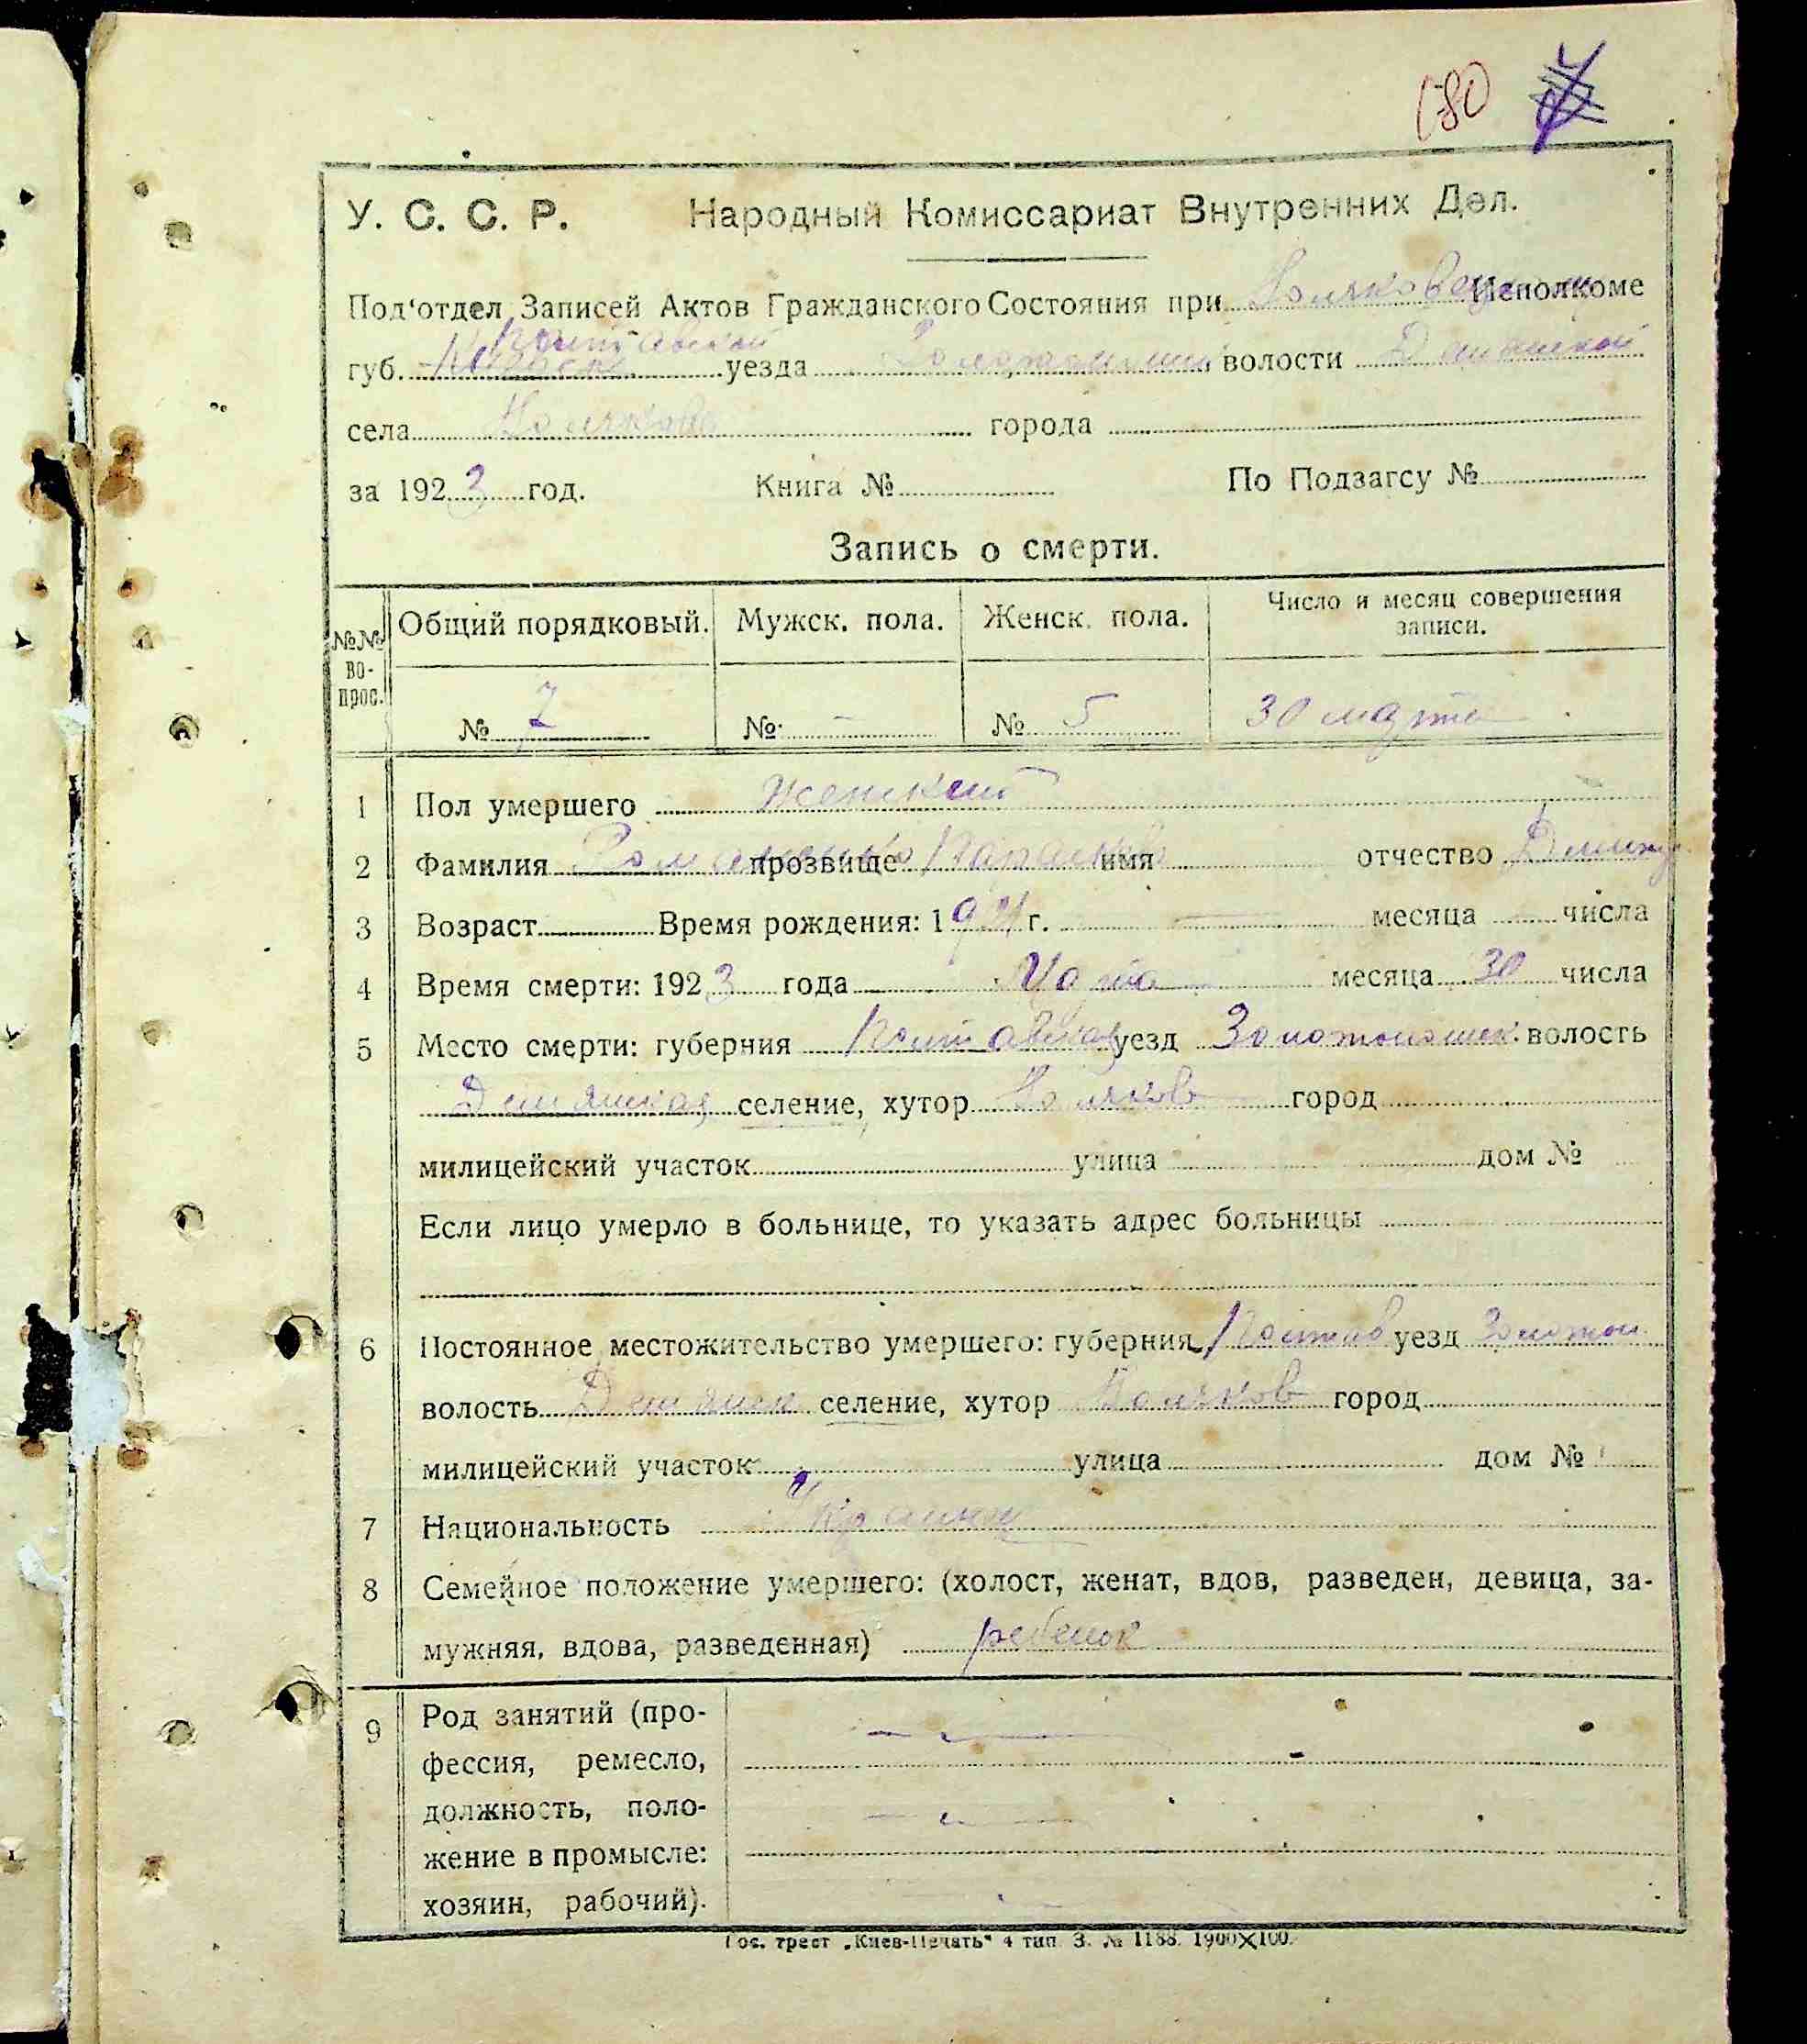 180
У. С. С. Р. Народный Комиссариат Внутренних Дел.
Под'отдел Записей Актов Гражданского Состояния при Исполкоме
губ. Полтавской уезда волости
села города
за 1923 год. Книга № По Подзагсу №
Запись о смерти.
№№ во-прос. Общий порядковый. Мужск. пола. Женск. пола. Число и месяц совершения записи.
№ 7 № - № 5 30 марта
1 Пол умершего женский
2 Фамилия Романенко прозвище имя отчество
3 Возраст Время рождения: 1921 г. — месяца числа
4 Время смерти: 1923 года Марта месяца 30 числа
5 Место смерти: губерния Полтавская уезд Золотоношск. волость
селение, хутор город
милицейский участок улица дом №
Если лицо умерло в больнице, то указать адрес больницы
6 Постоянное местожительство умершего: губерния Полтав уезд Золотон
волость селение, хутор город
милицейский участок улица дом №
7 Национальность
8 Семейное положение умершего: (холост, женат, вдов, разведен, девица, за-
мужняя, вдова, разведенная) ребенок
9 Род занятий (про-
фессия, ремесло,
должность, поло-
жение в промысле:
хозяин, рабочий).
Гос. трест „Киев-Печать" 4 тип. З. № 1188. 1900×100.